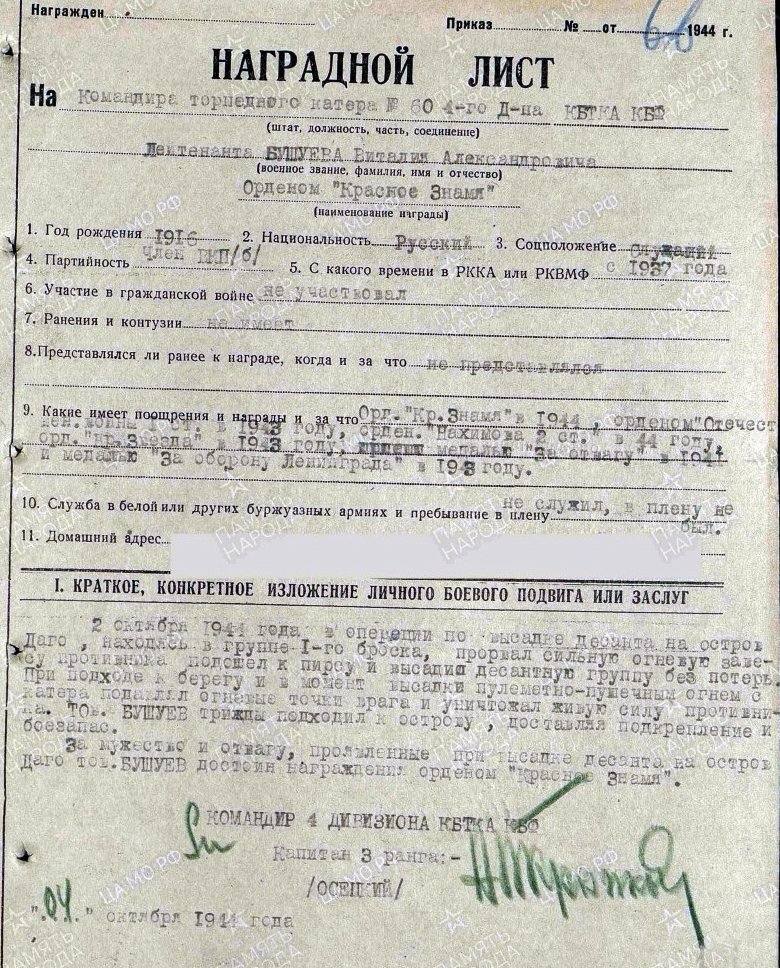 Награжден
Приказ № от 1944 г.
НАГРАДНОЙ ЛИСТ
На Командира торпедного катера № 60 4-го Д-на КБТКА КБФ
(штат, должность, часть, соединение)
Лейтенанта БУШУЕВА Виталия Александровича
(военное звание, фамилия, имя и отчество)
Орденом "Красное Знамя"
(наименование награды)
1. Год рождения 1916 2. Национальность Русский 3. Соцположение Служащий
4. Партийность Член ВКП/б/ 5. С какого времени в РККА или РКВМФ с 1937 года
6. Участие в гражданской войне не участвовал
7. Ранения и контузии не имеет
8. Представлялся ли ранее к награде, когда и за что не представлялся
9. Какие имеет поощрения и награды и за что Орд. "Кр. Знамя" в 1944, орденом "Отечест
вен. войны 1 ст." в 1943 году, орден. "Нахимова 2 ст." в 44 году,
орд. "Кр. Звезда" в 1943 году, медалью "За отвагу" в 1941
и медалью "За оборону Ленинграда" в 1943 году.
10. Служба в белой или других буржуазных армиях и пребывание в плену не служил, в плену не
был.
11. Домашний адрес
I. КРАТКОЕ, КОНКРЕТНОЕ ИЗЛОЖЕНИЕ ЛИЧНОГО БОЕВОГО ПОДВИГА ИЛИ ЗАСЛУГ
2 октября 1944 года в операции по высадке десанта на остров
Даго, находясь в группе I-го броска, прорвал сильную огневую заве-
су противника подошел к пирсу и высадил десантную группу без потерь.
При подходе к берегу и в момент высадки пулеметно-пушечным огнем с
катера подавлял огневые точки врага и уничтожал живую силу противни-
ка. Тов. БУШУЕВ трижды подходил к острову, доставляя подкрепление и
боезапас.
За мужество и отвагу, проявленные при высадке десанта на остров
Даго тов. БУШУЕВ достоин награждения орденом "Красное Знамя".
КОМАНДИР 4 ДИВИЗИОНА КБТКА КБФ
Капитан 3 ранга:-
/ОСЕЦКИЙ/
".04." октября 1944 года